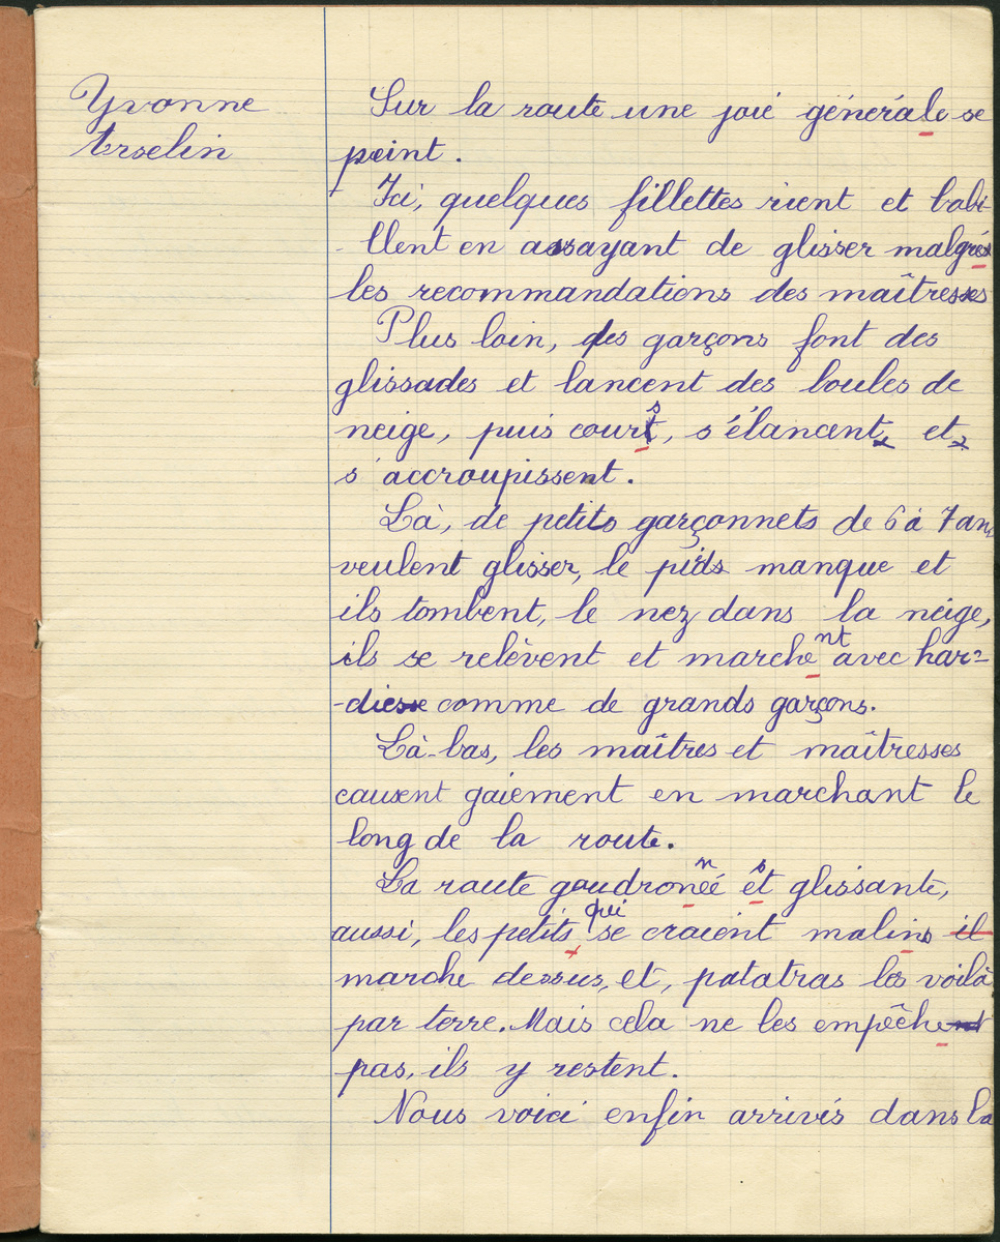 Yvonne
Erselin
Sur la route une joie générale se
peint.
Ici, quelques fillettes rient et babi-
-llent en assayant de glisser malgrés
les recommandations des maîtresses
Plus loin, des garçons font des
glissades et lancent des boules de
neige, puis cours, s'élancent, et,
s'accroupissent.
Là, de petits garçonnets de 6 à 7 ans
veulent glisser, le pids manque et
ils tombent, le nez dans la neige,
ils se relèvent et marchent avec har=
-diesse comme de grands garçons.
Là-bas, les maîtres et maîtresses
causent gaiement en marchant le
long de la route.
La route goudronnéé est glissante,
aussi, les petits qui se craient malins il
marche dessus, et, patatras les voilà
par terre. Mais cela ne les empêchent
pas, ils y restent.
Nous voici enfin arrivés dans la